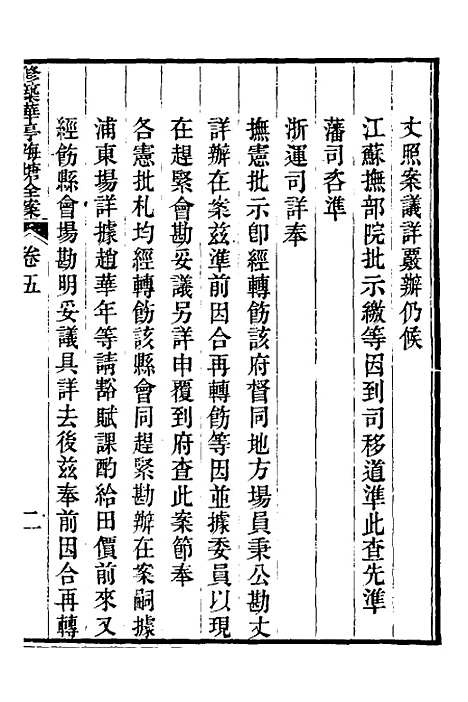 丈照案議詳覈辦仍候
江蘇撫部院批示繳等因到司移道準此查先準
藩司咨準
浙運司詳奉
撫憲批示卽經轉飭該府督同地方場員秉公勘丈
詳辦在案茲準前因合再轉飭等因並據委員以現
在趕緊會勘妥議另詳申覆到府查此案節奉
各憲批札均經轉飭該縣會同趕緊勘辦在案嗣據
浦東場詳據趙華年等請豁賦課酌給田價前來又
經飭縣會場勘明妥議具詳去後茲奉前因合再轉
修築華亭海塘全案 卷五 二